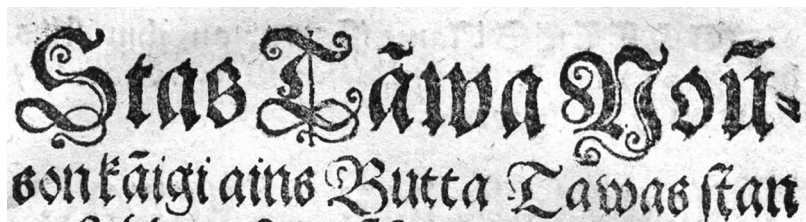 Stas Tāwa Noū-
son kāigi ains Butta Tāwas stan